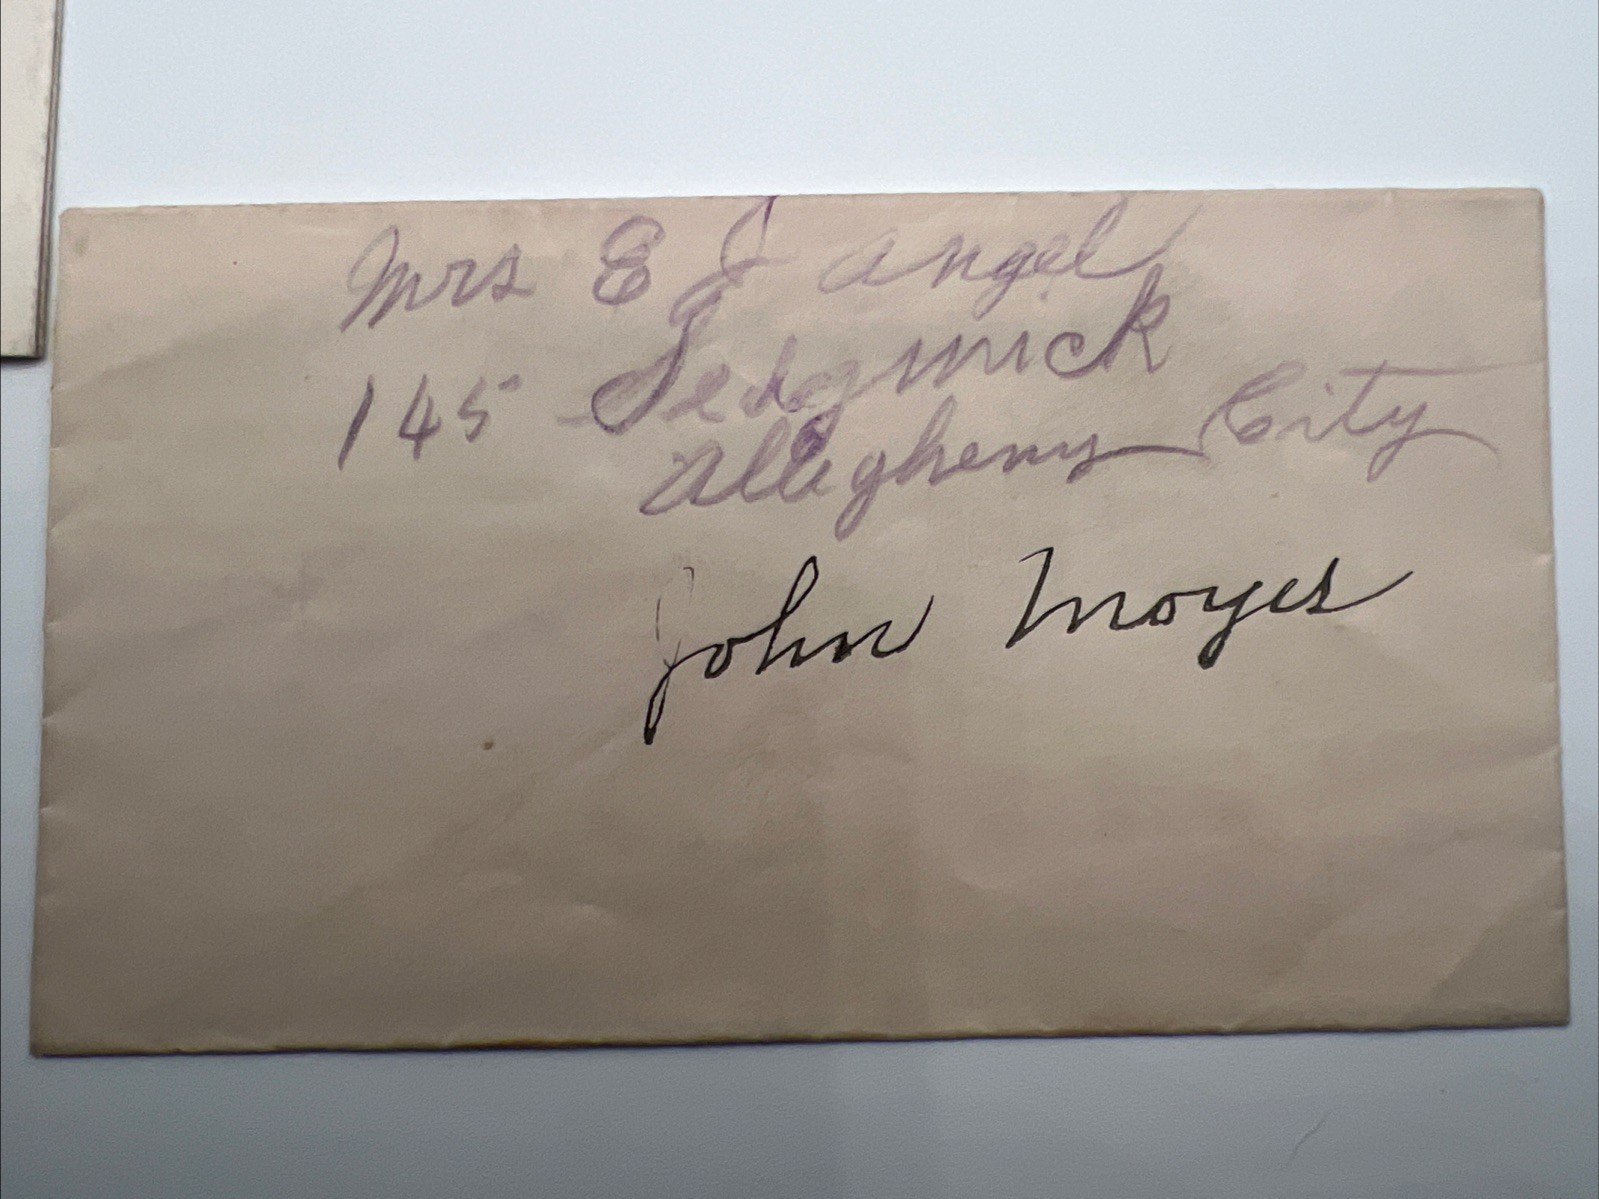 Mrs E J Angel
145 Sedgwick
Allegheny City
John Moyes